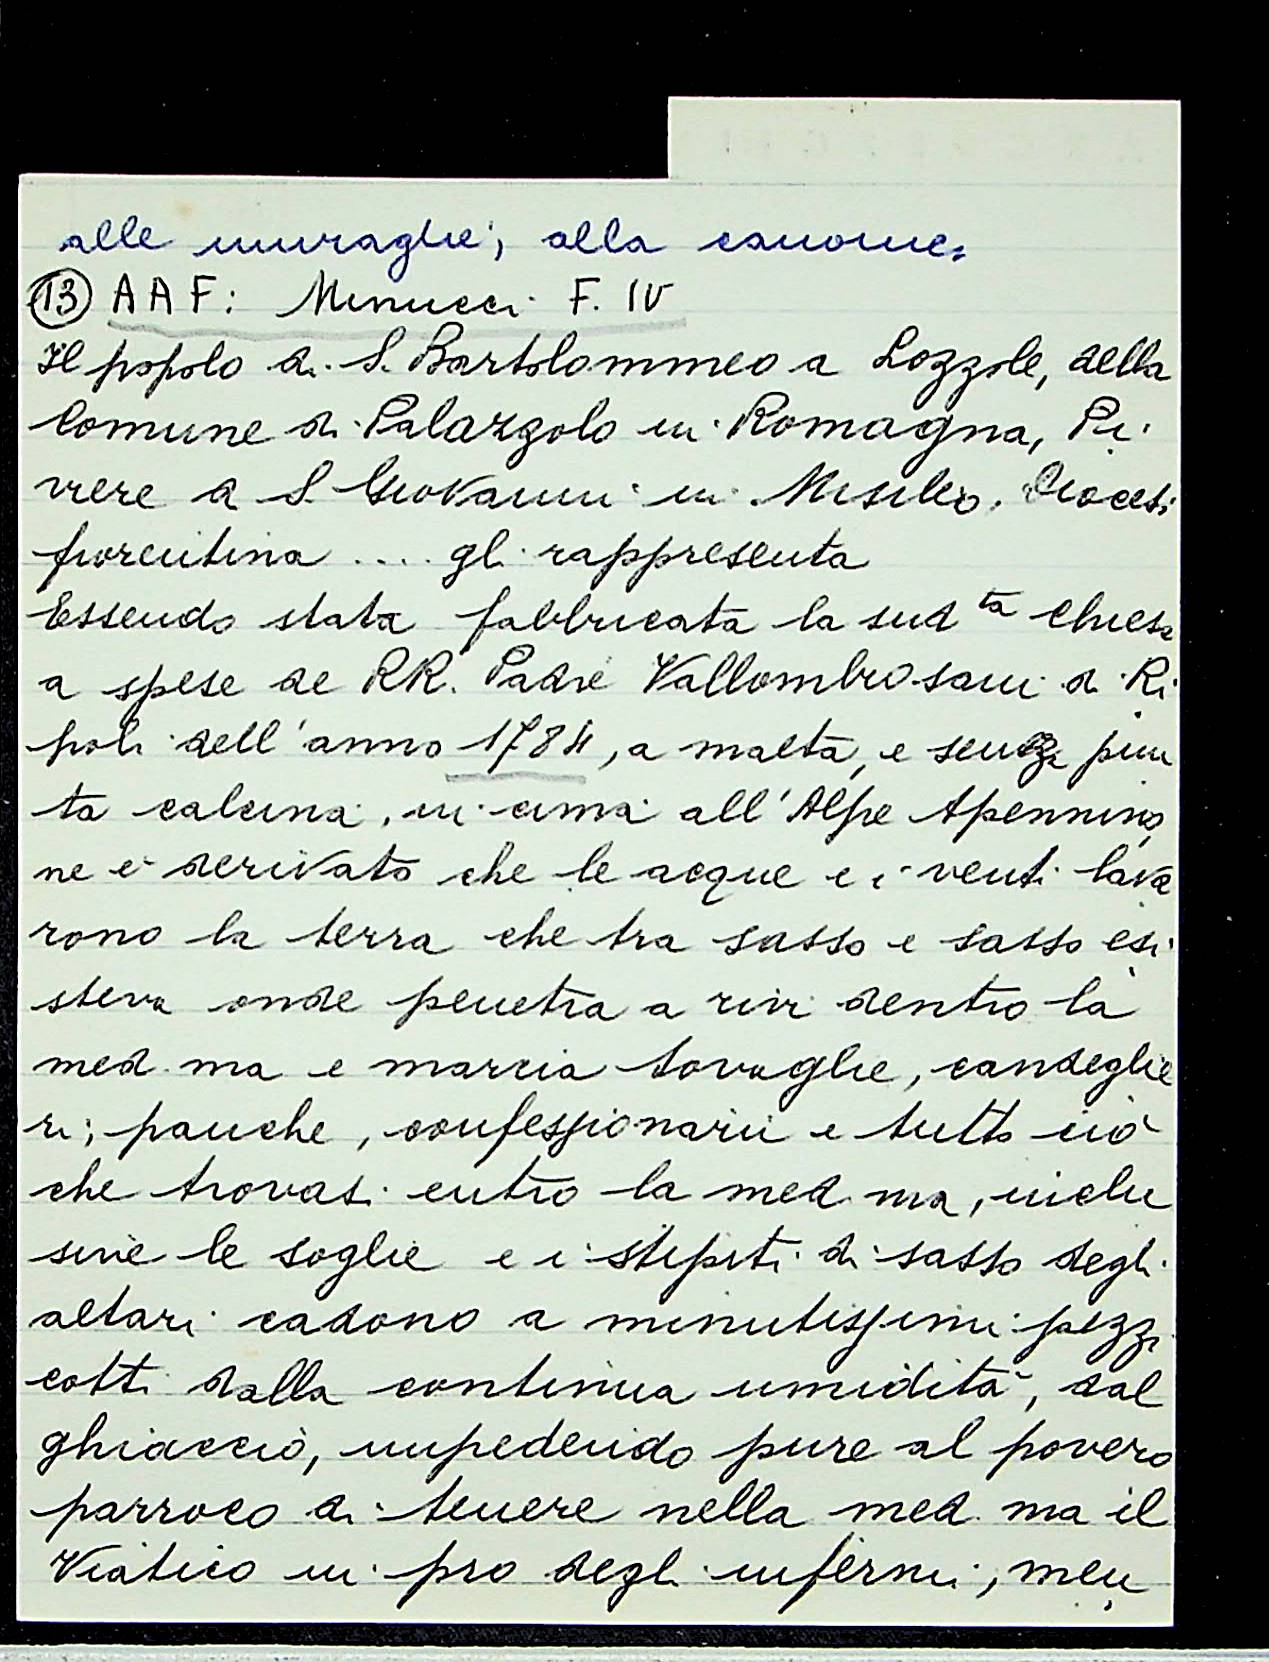 alle muraglie, alla canonica
13 AAF: Minucci F. IV
Il popolo di S. Bartolommeo a Lozzole, della
Comune di Palazzolo in Romagna, Pi
viere a S Giovanni in Misileo, Diocesi
fiorentina .... gli rappresenta
Essendo stata fabbricata la sud ta Chiesa
a spese de RR. Padri Vallombrosani di Ri
poli dell'anno 1784, a malta, e senza piun
ta calcina, in cima all'Alpe Apennino,
ne è derivato che le acque e i venti lava
rono la terra che tra sasso e sasso esi
steva onde penetra a rivi dentro la
med. ma e marcia tovaglie, candeglie
ri, panche, confessionarii e tutto ciò
che trovasi entro la med. ma, inclu
sive le soglie e i stipiti di sasso degli
altari cadono a minutissimi pezzi
cotti dalla continua umidità, dal
ghiaccio, impedendo pure al povero
parroco di tenere nella med. ma il
Viatico in pro degli infermi, men